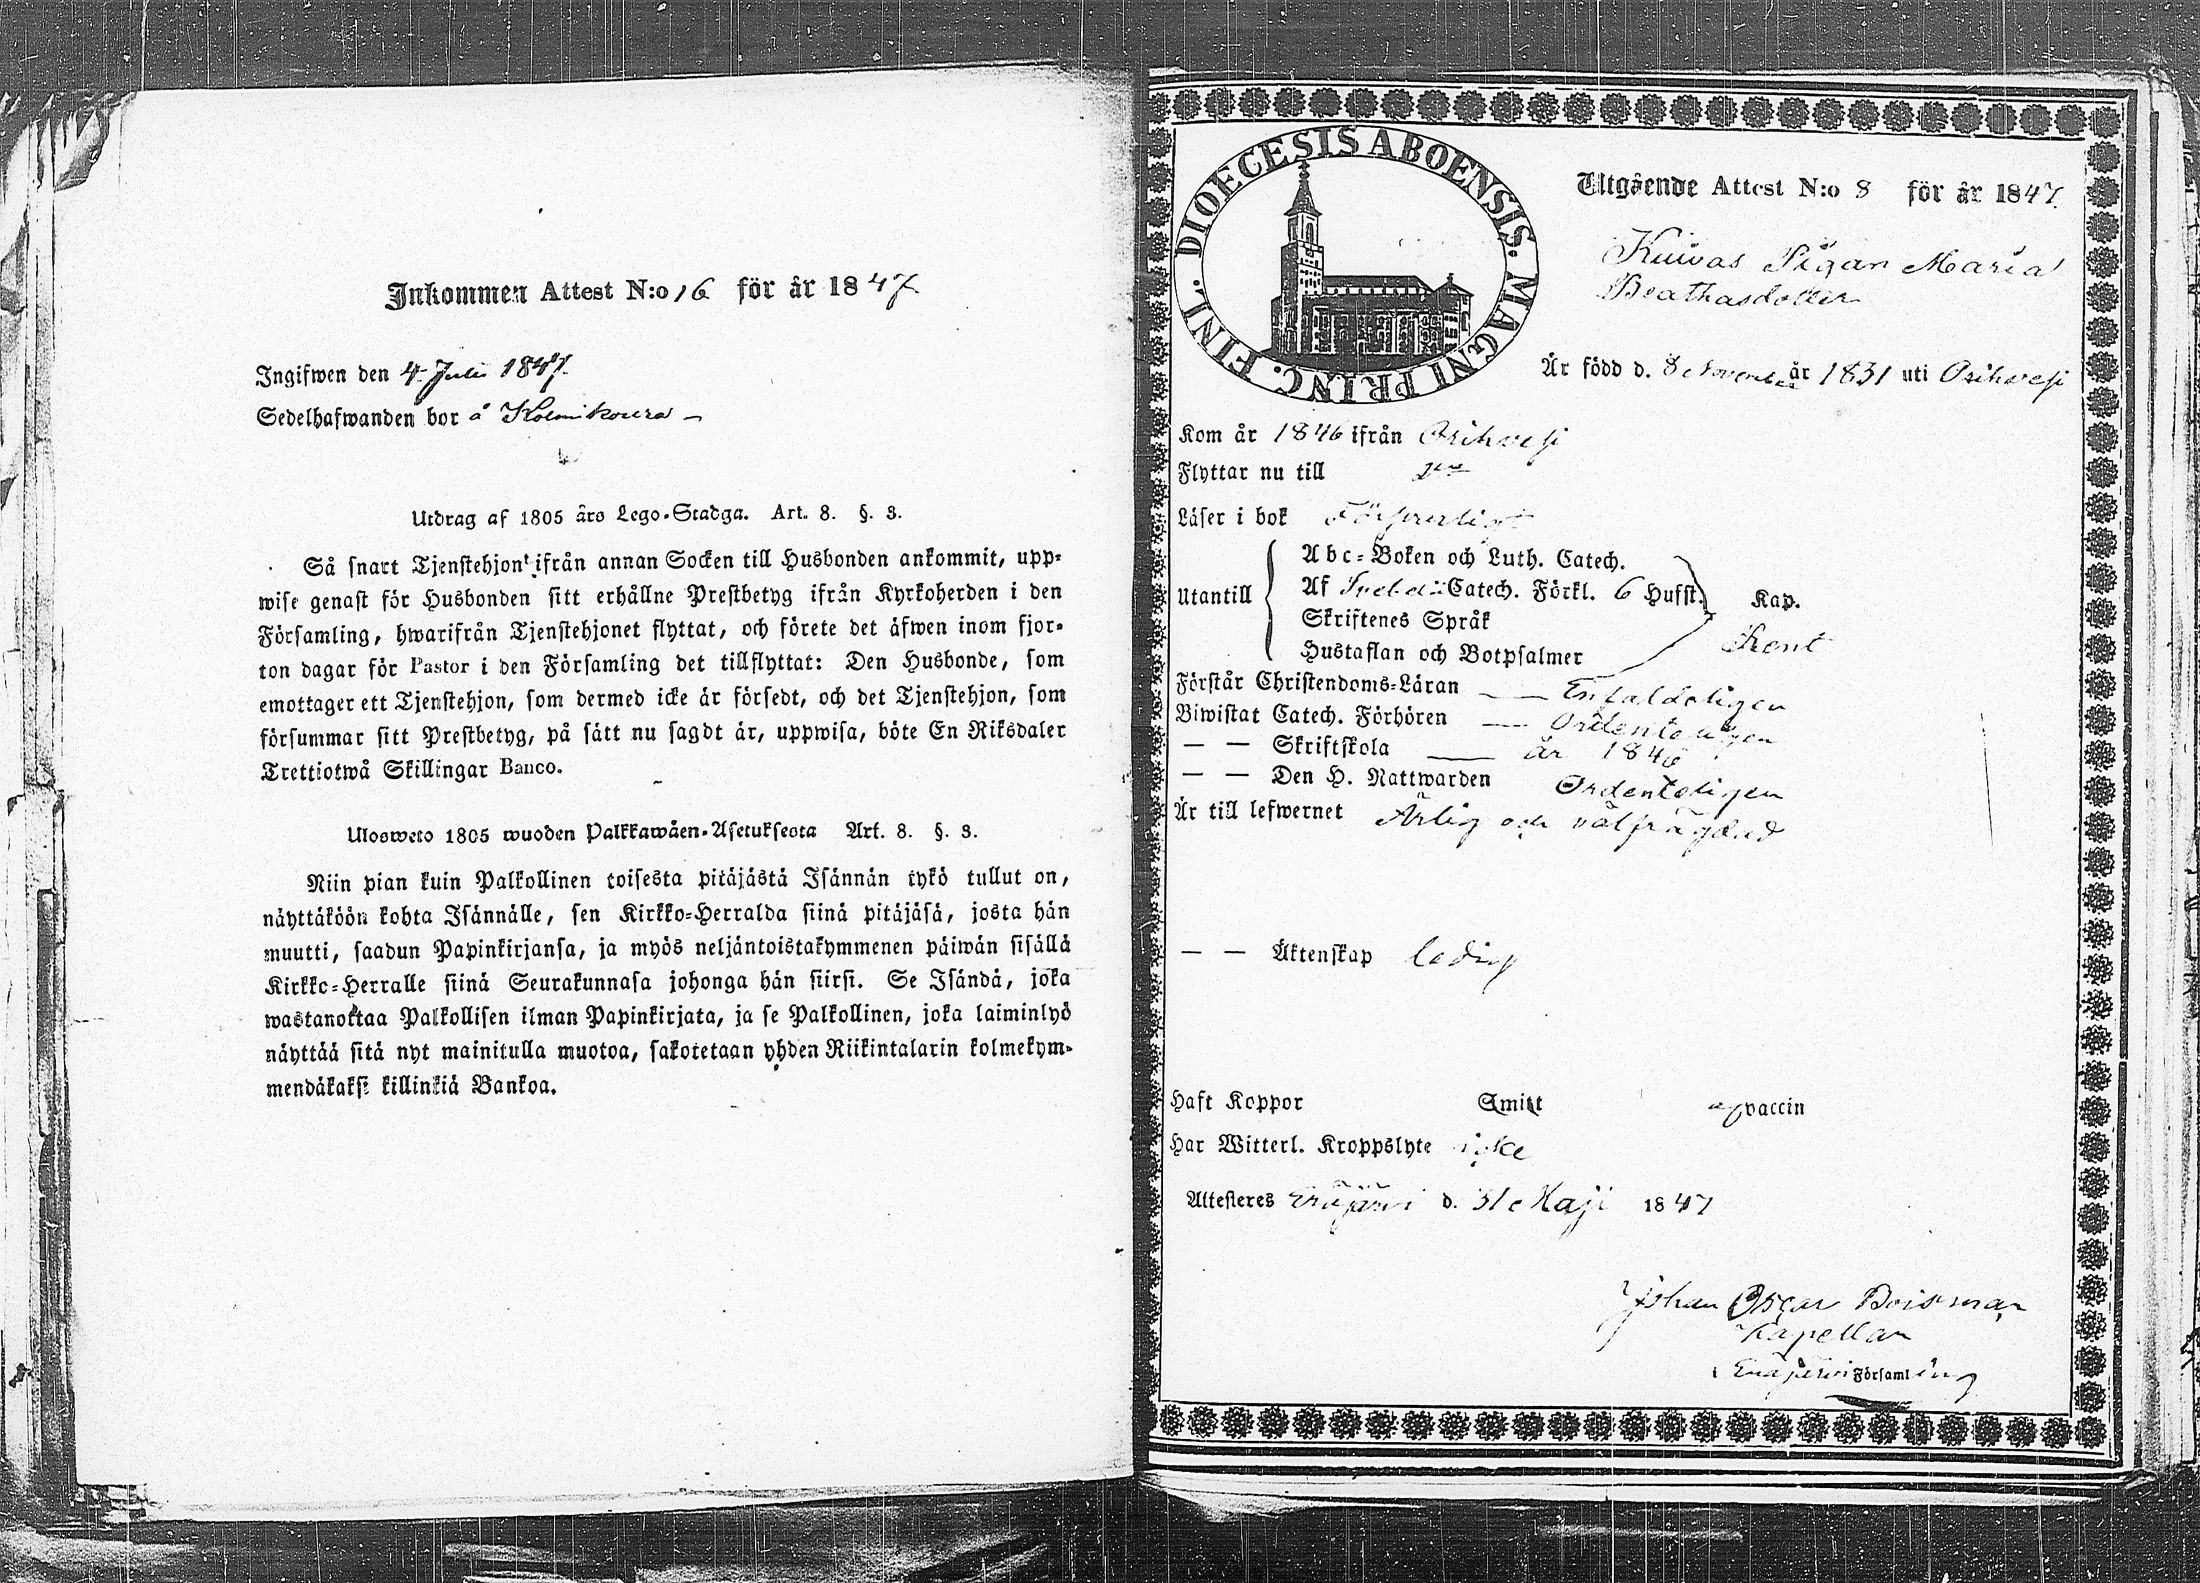 Inkommen Attest N:o 16 för år 1847
Ingifwen den 4 Juli 1847.
Sedelhafwanden bor å
Utdrag af 1805 års Lego-Stadga. Art. 8. §. 3.
Så snart Tjenstehjon ifrån annan Socken till Husbonden ankommit, upp-
wise genast för Husbonden sitt erhållne Prestbetyg ifrån Kyrkoherden i den
Församling, hwarifrån Tjenstehjonet flyttat, och förete det äfwen inom fjor-
ton dagar för Pastor i den Församling det tillflyttat: Den Husbonde, som
emottager ett Tjenstehjon, som dermed icke är försedt, och det Tjenstehjon, som
försummar sitt Prestbetyg, på sätt nu sagdt är, uppwisa, böte En Riksdaler
Trettiotwå Skillingar Banco.
Ulosweto 1805 wuoden Palkkawäen-Asetuksesta Art. 8. §. 3.
Niin pian kuin Palkollinen toisesta pitäjästä Isännän tykö tullut on,
näyttäköön kohta Isännälle, sen Kirkko-Herralda siinä pitäjäsä, josta hän
muutti, saadun Papinkirjansa, ja myös neljäntoistakymmenen päiwän sisällä
Kirkko-Herralle siinä Seurakunnasa johonga hän siirsi. Se Isändä, joka
wastanottaa Palkollisen ilman Papinkirjata, ja se Palkollinen, joka laiminlyö
näyttää sitä nyt mainitulla muotoa, sakotetaan yhden Riikintalarin kolmekym-
mendäkaksi killinkiä Bankoa.
DIOECESIS ABOENSIS. MAGNI PRINC. FINL.
Utgående Attest N:o 8 för år 1847.
Kuivas Pigan Maria
Beathasdotter
Är född d. 8 November år 1831 uti Orihvesi
Kom år 1846 ifrån Orihvesi
Flyttar nu till
Läser i bok Försvarligt
Utantill
Abc-Boken och Luth. Catech.
Af Svebelii Catech. Förkl. 6 Hufst. Kap.
Skriftenes Språk
Hustaflan och Botpsalmer
Förstår Christendoms-Läran Enfaldeligen
Biwistat Catech. Förhören Ordenteligen
— — Skriftskola år 1846
— — Den H. Nattwarden Ordenteligen
Är till lefwernet Ärlig och välfrägdad
— — Äktenskap ledig
Haft Koppor Smitt af vaccin
Har Witterl. Kroppslyte icke
Attesteres Eräjärvi d. 31 Maji 1847
Johan Oscar Boisman
Kapellan
Eräjärvi Församling